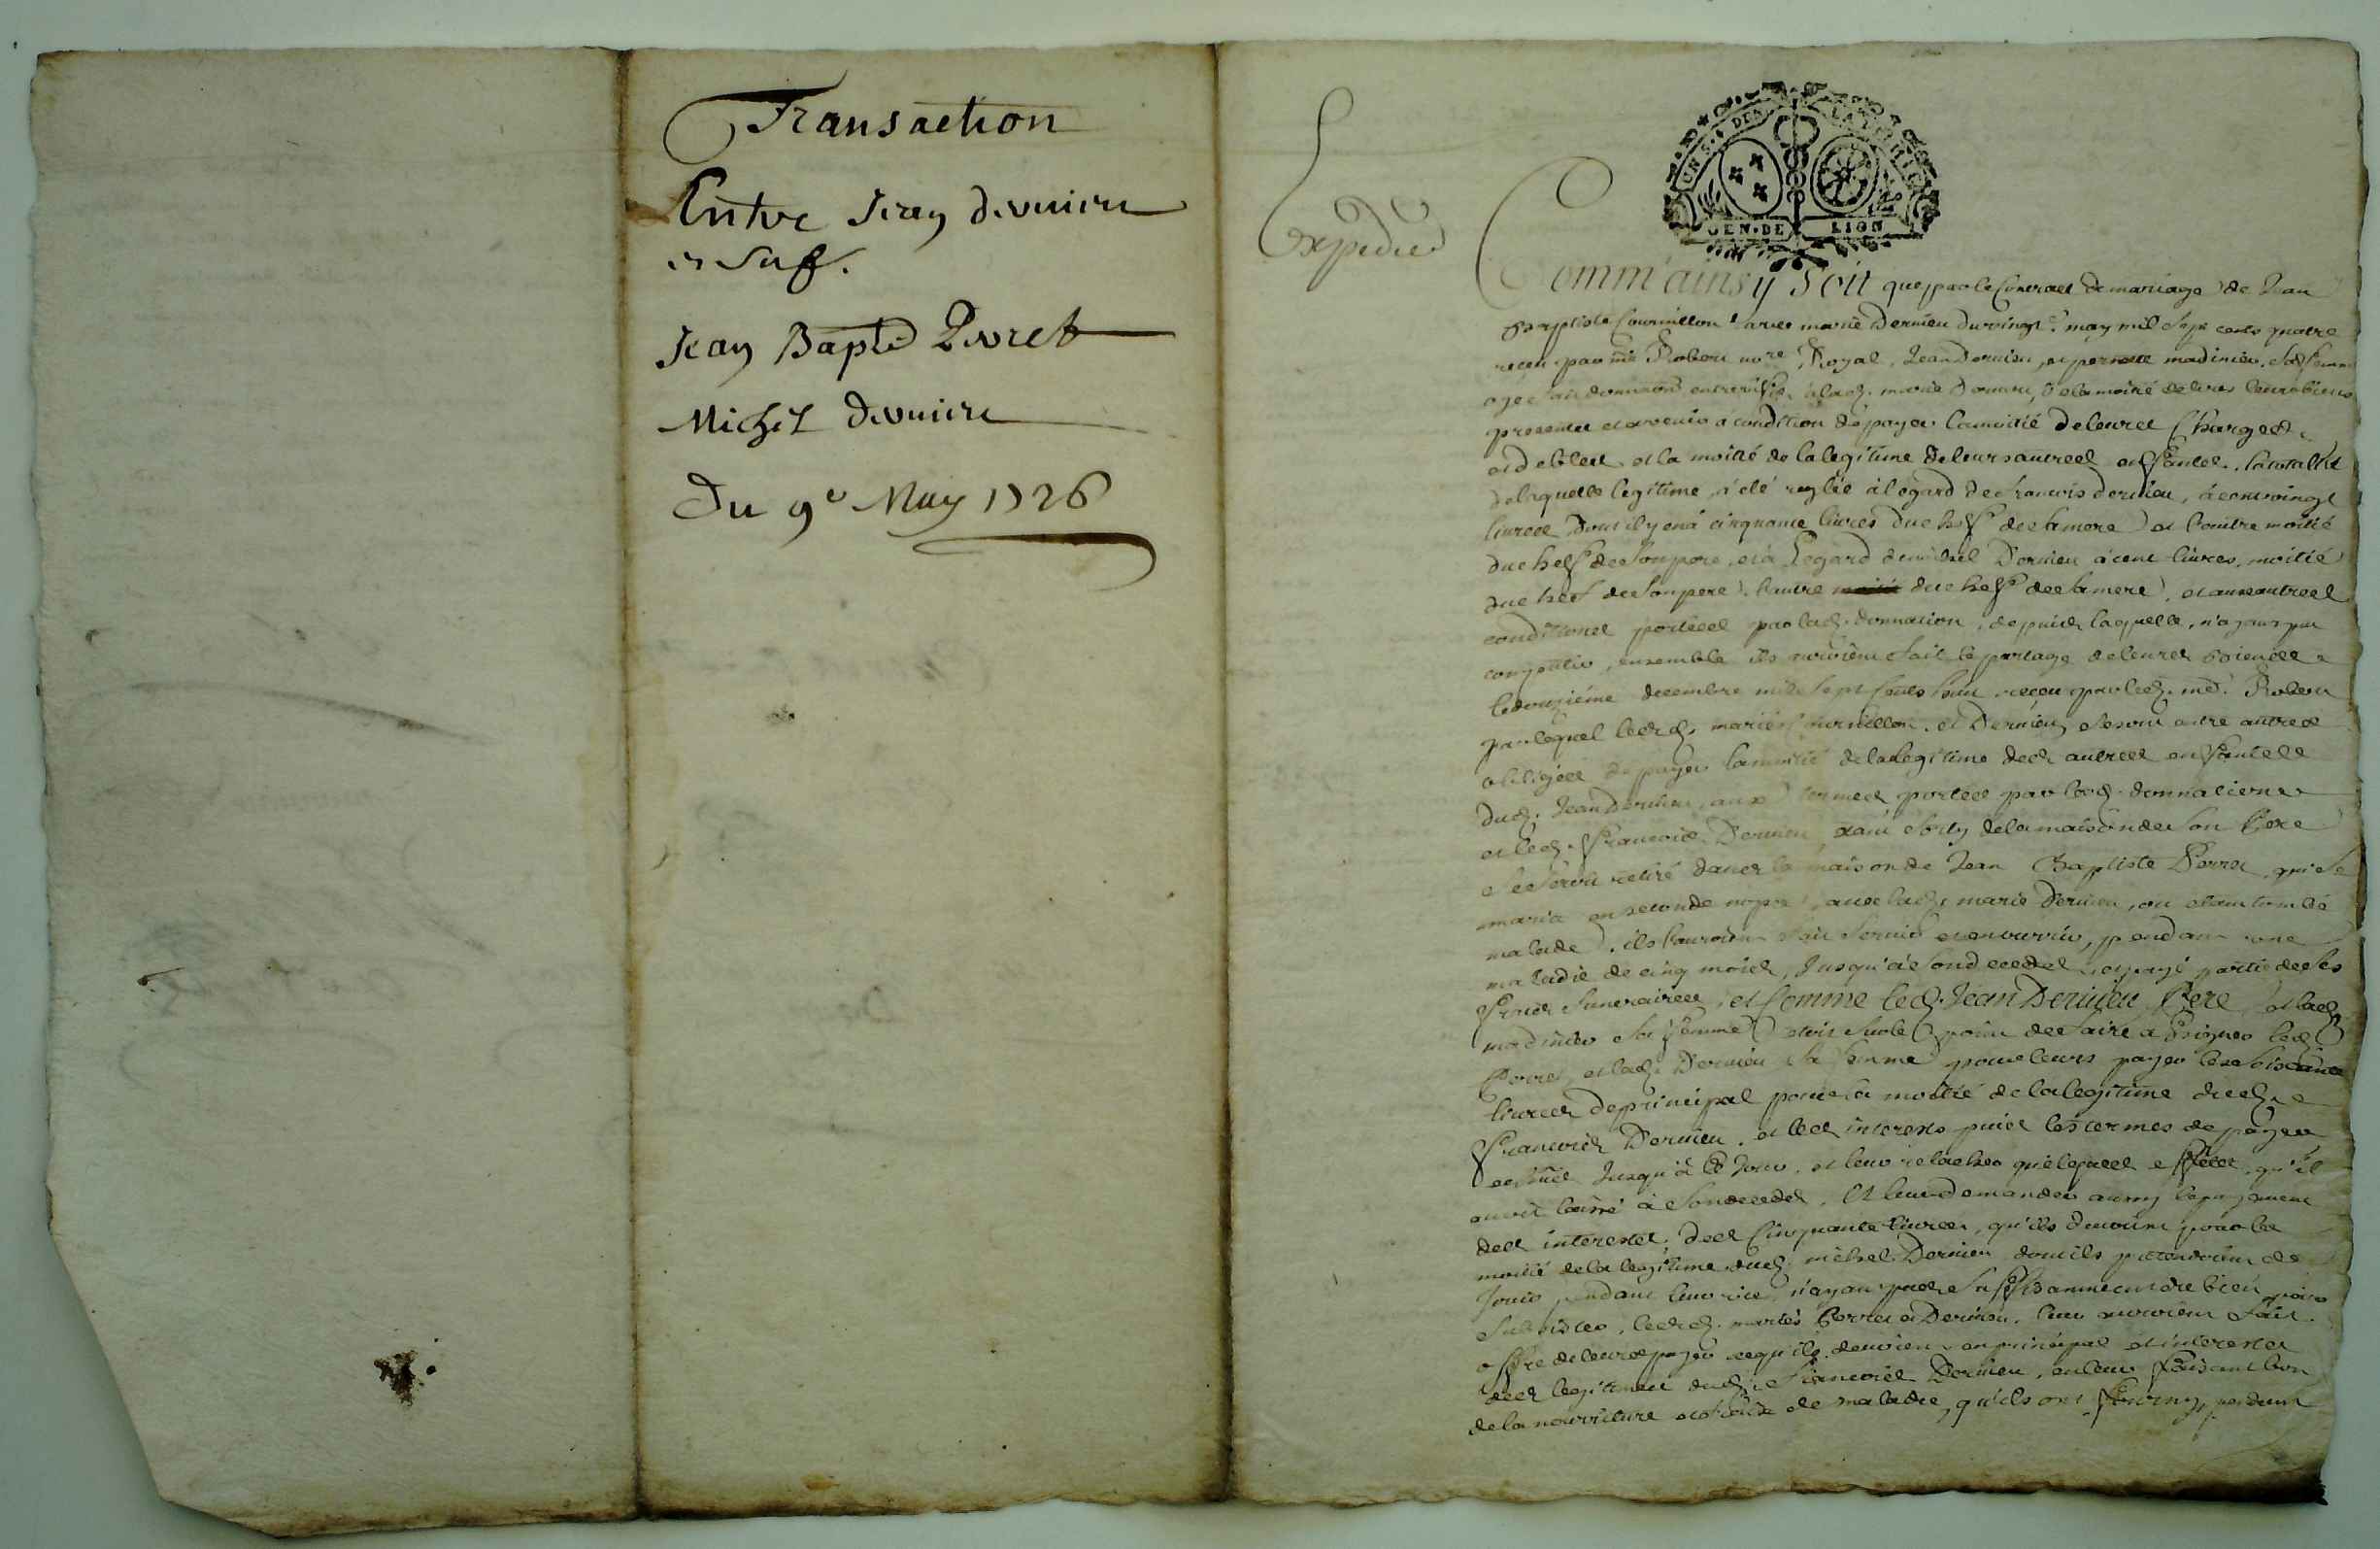 Transaction
Entre Jean dervieu
et sa fe.
Jean Bapte Perret
Michel dervieu
Du 9e May 1726
Expedié
UN S. 4 DEN.
LA
GEN. DE LION
Comm'ainsy soit que par le Contract de mariage de Jean
Baptiste Cournillon avec marie Dervieu du vingt may mil sept cents quatre
reçeu par me Robou nore Royal, Jean Dervieu, et pernette madinier sa femme
donnation entrevifs à lad. marie Dervieu, de la moitié de leurs biens
presentes et avenir à condition de payer la moitié de leures Charges
et debtes et la moitié de la legitime de leurs autres enfantes. la totalité
de laquelle legitime a été reglée à l'egard de francois dervieu, à cent vingt
livres dont il y en a cinquante livres du chef de sa mere et l'autre moitié
du chef de son pere, et à l'egard de michel Dervieu à cent livres, moitié
du chef de son pere, l'autre du chef de sa mere, et aux autres
conditiones portées par lad. donnation, depuis laquelle, n'ayant pu
compatir, ensemble ils auroient fait le partage de leures biens
le douzième decembre mil sept cents huit reçeu par led. me. Robou
par lequel lesd. mariés Cournillon et Dervieu, se sont entre autres
obligées de payer la moitié de la legitime des autres enfantes
dud. Jean Dervieu, aux termes portées par lesd. donnationes
et led. francois Dervieu étant sorty de la maison de son Pere
se seroit retiré dans la maison de Jean Baptiste Perret, qui se
maria en seconde nopce, avec lad. marie Dervieu, où étant tombé
malade, ils l'auroient fait servir et nourrir, pendant une
maladie de cinq mois, Jusqu'à son decedes, et payé partie de ses
frais funeraires, et Comme led. Jean Dervieu Pere, et lad.
madinier sa femme etoit sur le point de faire assigner led.
Perret, et lad. Dervieu sa femme pour leurs payer les soixante
livres de principal pour la moitié de la legitime dud.
francois Dervieu, et les interests puis les termes de payer
echues Jusqu'à ce Jour, et leur relacher quelques effetes, qu'il
avoit laissé à son decedes, et leur demander aussy le payement
des interestes, des Cinquante livres, qu'ils devoient pour la
moitié de la legitime dud. michel Dervieu dont ils pretendoient de
Jouir pendant leur vie, n'ayant pas suffisamment de bien pour
subsister, lesd. mariés Perret et Dervieu, leur auroient fait
offre de leur payer ce qu'ils devoient en principal et interestes
des legitimes dud. francois Dervieu, en leur faisant bon
de la nourriture et frais de maladie, qu'ils ont fourny, pendant